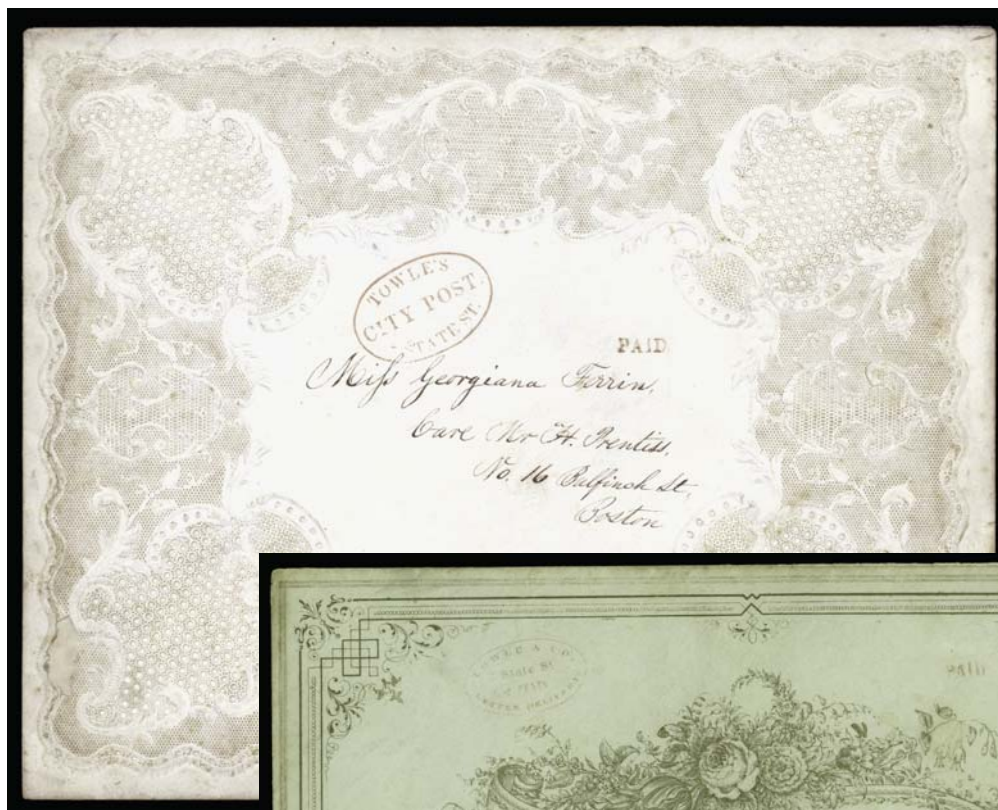 TOWLE'S
CITY POST.
STATE ST.
PAID
Miss Georgiana
Care Mr H. Prentiss,
No. 16 Bulfinch St,
Boston
TOWLE & CO
State St.
LETTER DELIVERY
PAID